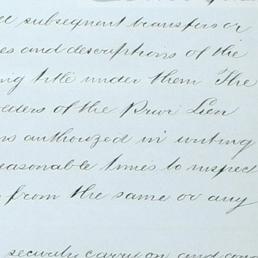 subsequent transfers or
es and descriptions of the
ing title under them The
olders of the Prior Lien
ns authorized in writing
reasonable times to inspect
from the same or any
security carry on and con